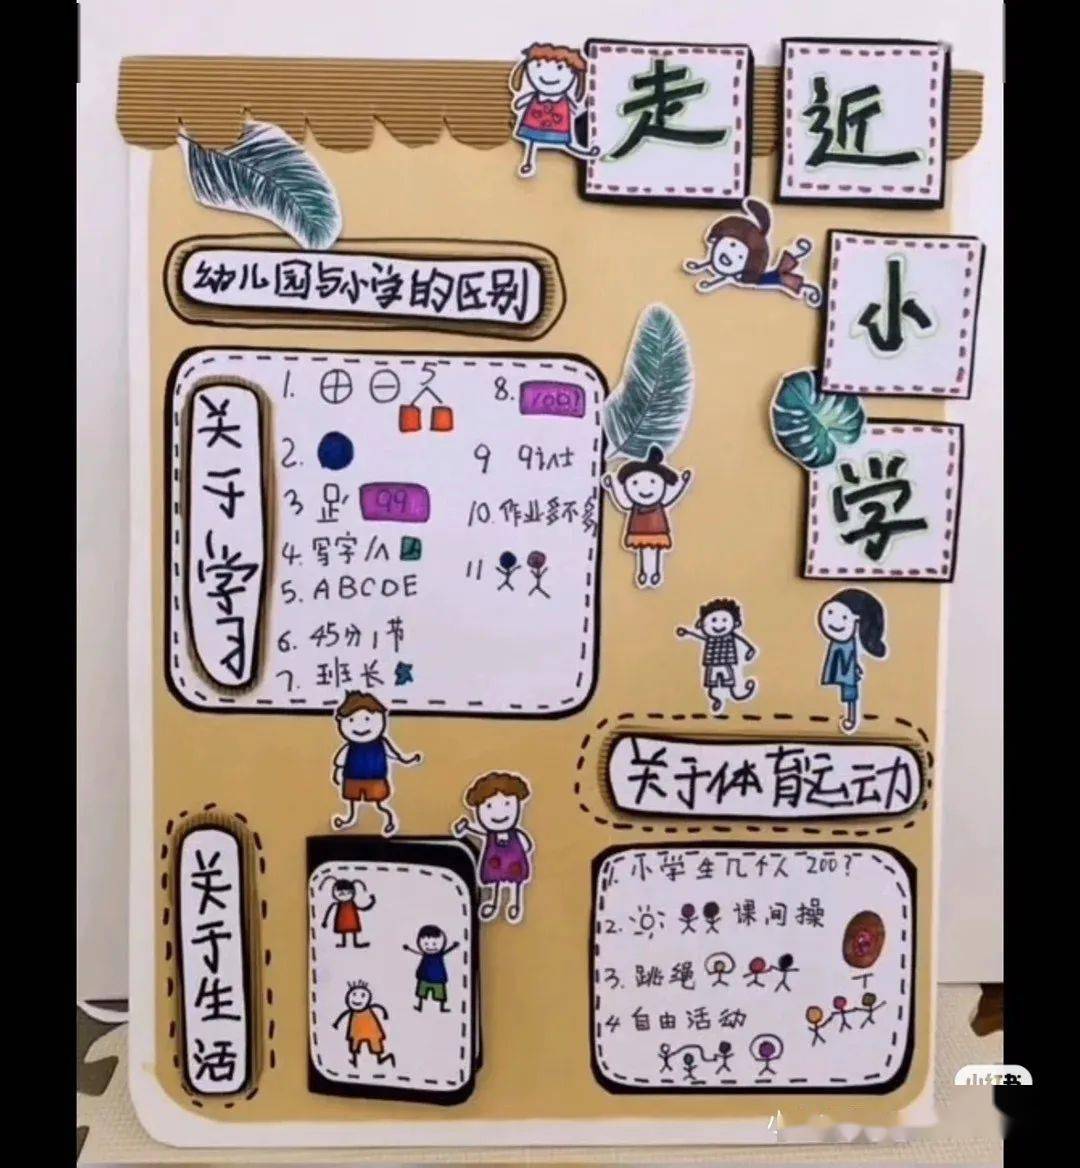 走近
小
学
幼儿园与小学的区别
关于学习
1. ⊕ ⊖ 5
2.
3 足 99
4. 写字
5. ABCDE
6. 45分1节
7. 班长
8. 100?
9
10. 作业多不多
11
关于体育运动
1. 小学生几个人 200?
2. 课间操
3. 跳绳
4 自由活动
关于生活
小红书